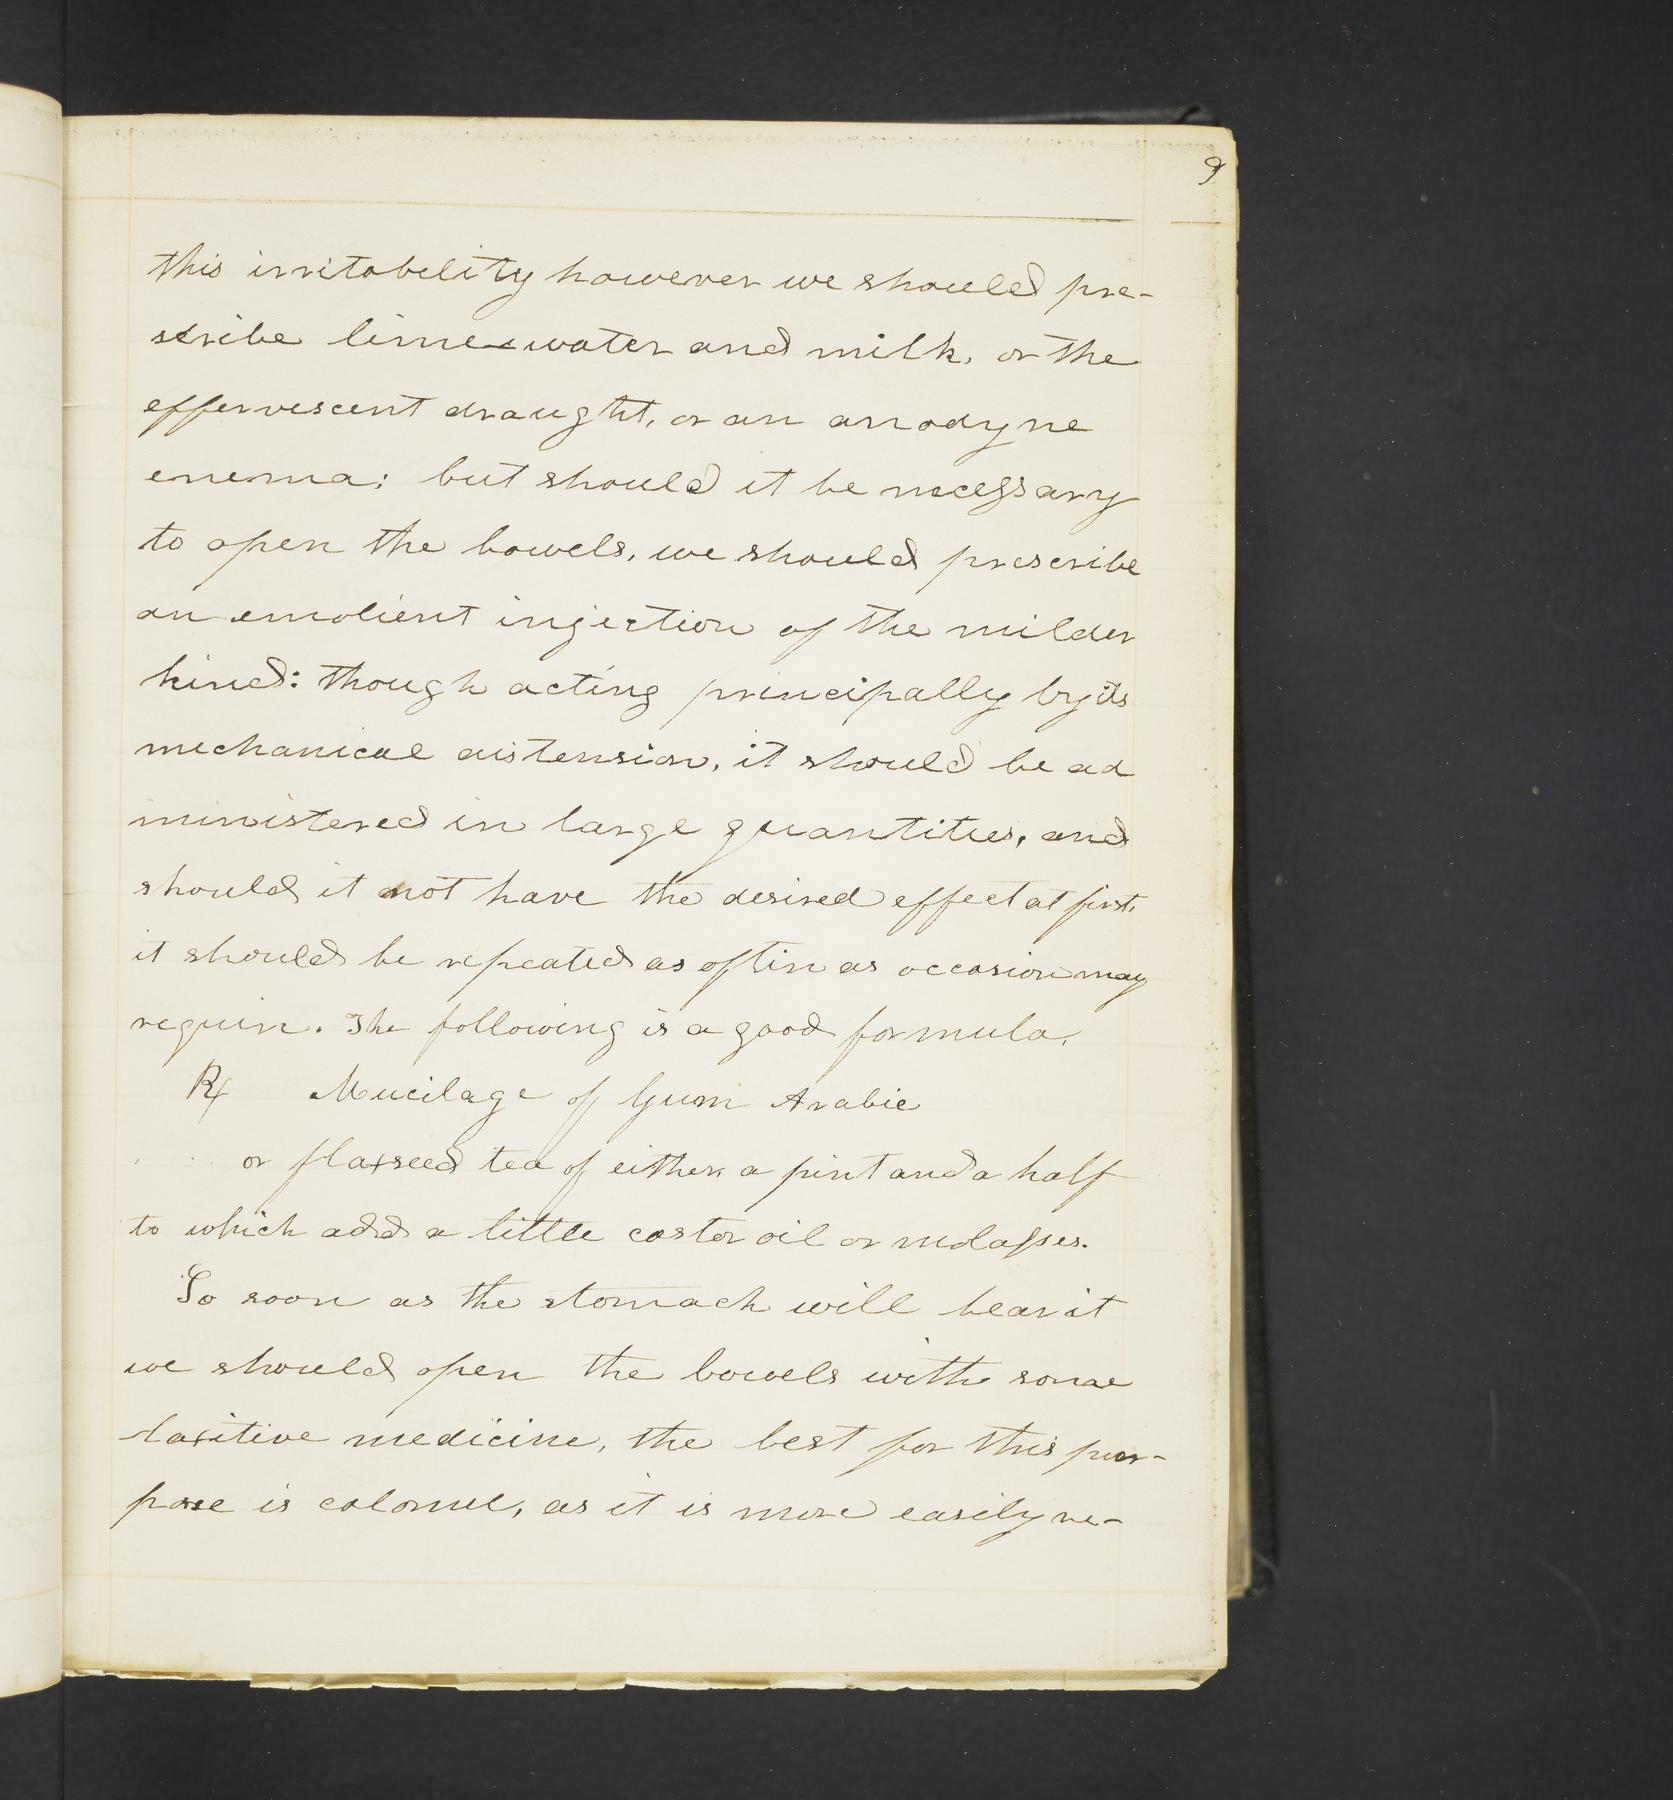 9
this irritobility however we should pre-
scribe lime-water and milk, or the
effervescent draught, or an anodyne
enema; but should it be necessary
to open the bowels, we should prescribe
an emolient injection of the milder
kind: though acting principally by its
mechanical distension, it should be ad
ministered in large quantities, and
should it not have the desired effect at first,
it should be repeated as often as occasion may
require. The following is a good formula.
℞ Mucilage of Gum Arabic
or flaxseed tea of either a pint and a half
to which add a little castor oil or molasses.
So soon as the stomach will bear it
we should open the bowels with some
laxitive medicine, the best for this pur-
pose is calomel, as it is more easily re-